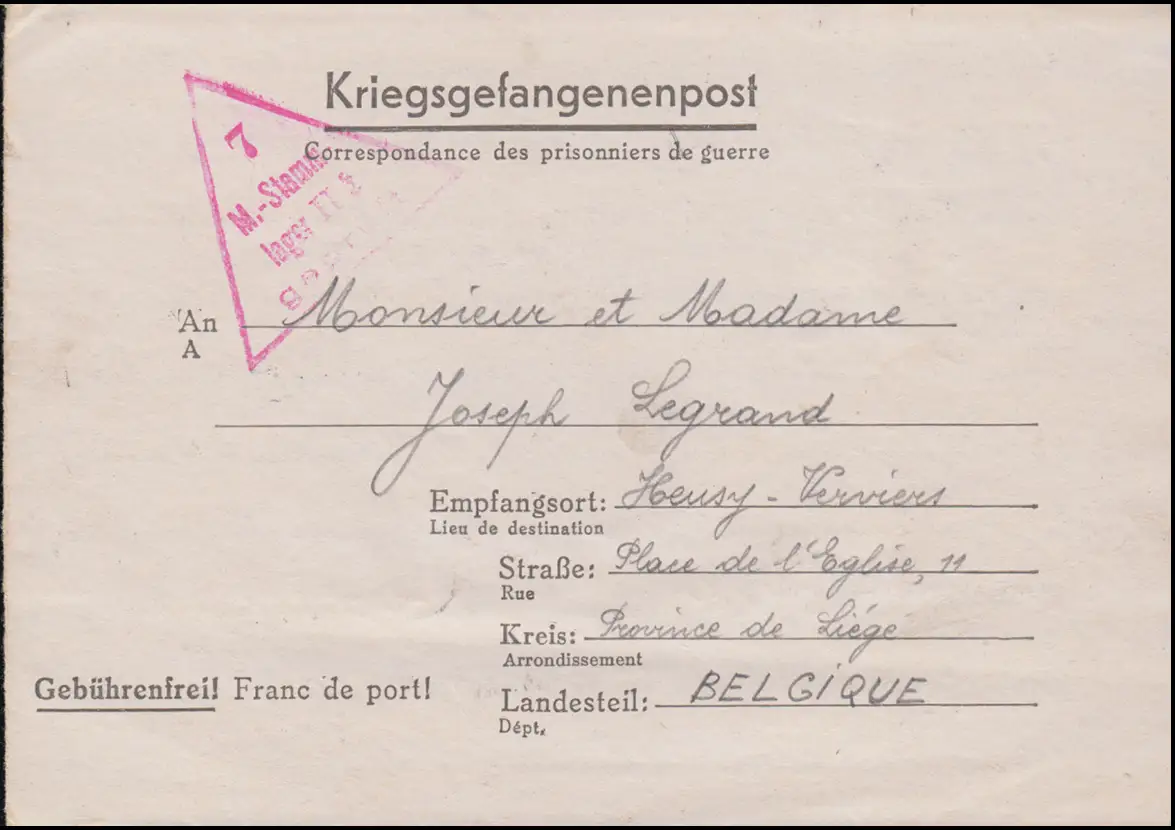 Kriegsgefangenenpost
Correspondance des prisonniers de guerre
7
M.-Stamm-
lager II
An Monsieur et Madame
A
Joseph Legrand
Empfangsort: Heusy - Verviers
Lieu de destination
Straße: Place de l'Eglise, 11
Rue
Kreis: Province de Liége
Arrondissement
Gebührenfrei! Franc de port!
Landesteil: BELGIQUE
Dépt.